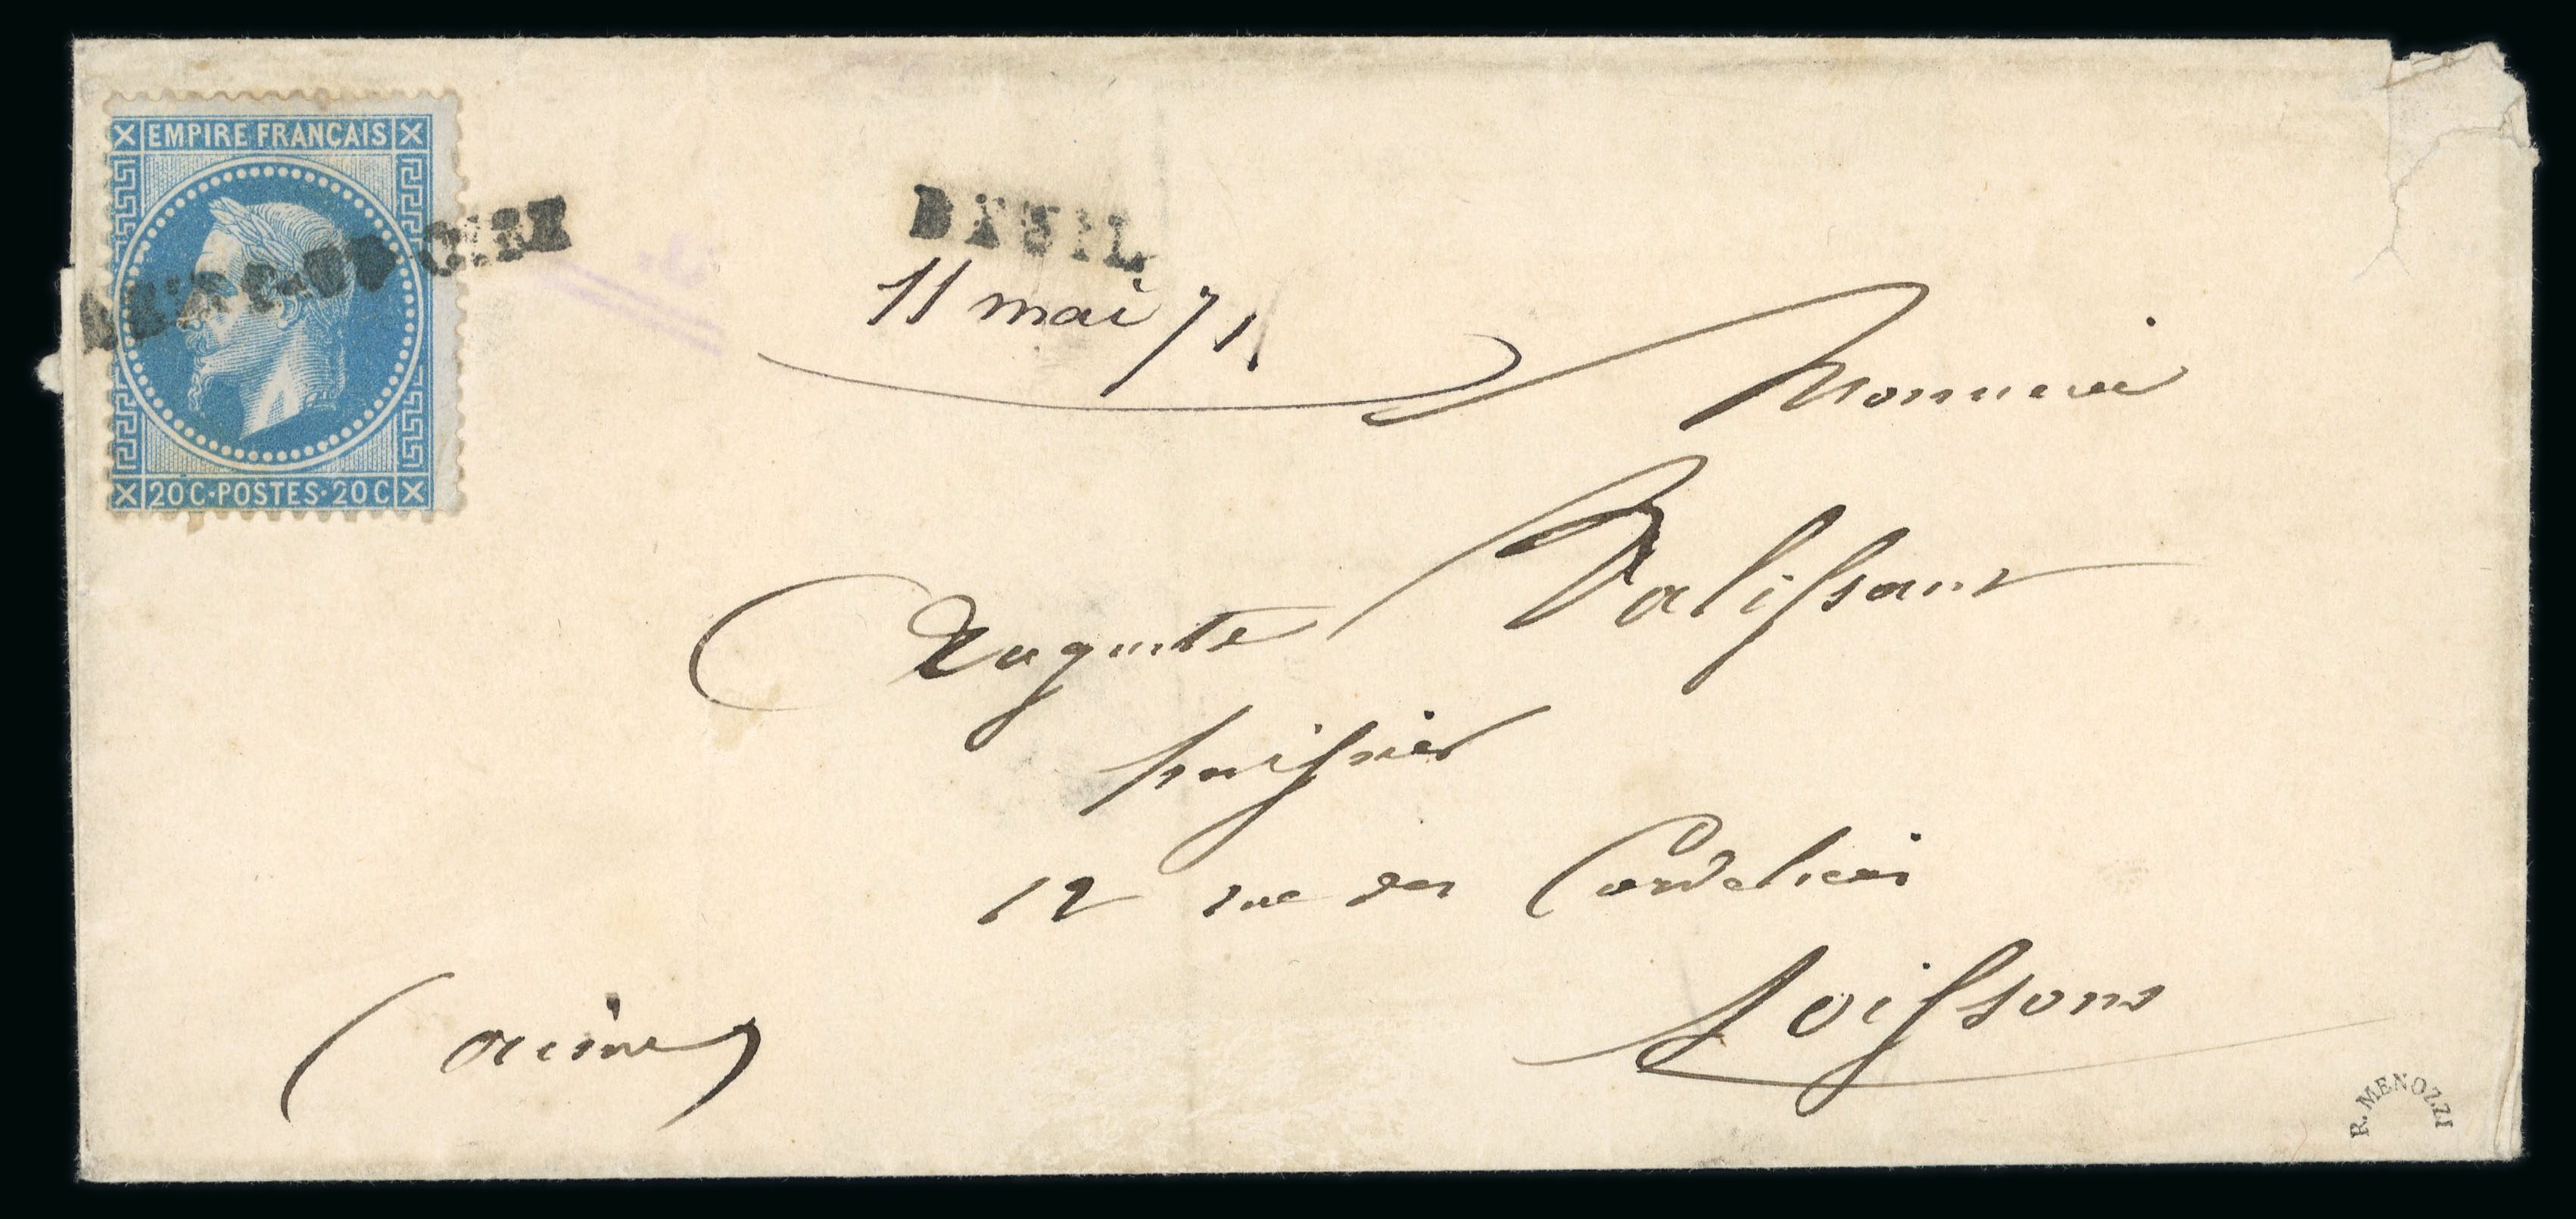 EMPIRE FRANÇAIS
20 C·POSTES·20 C
DEUIL
11 mai 71
Monsieur
Auguste Palissant
huissier
12 rue des Cordeliers
Soissons
(aisne)
R. MENOZZI